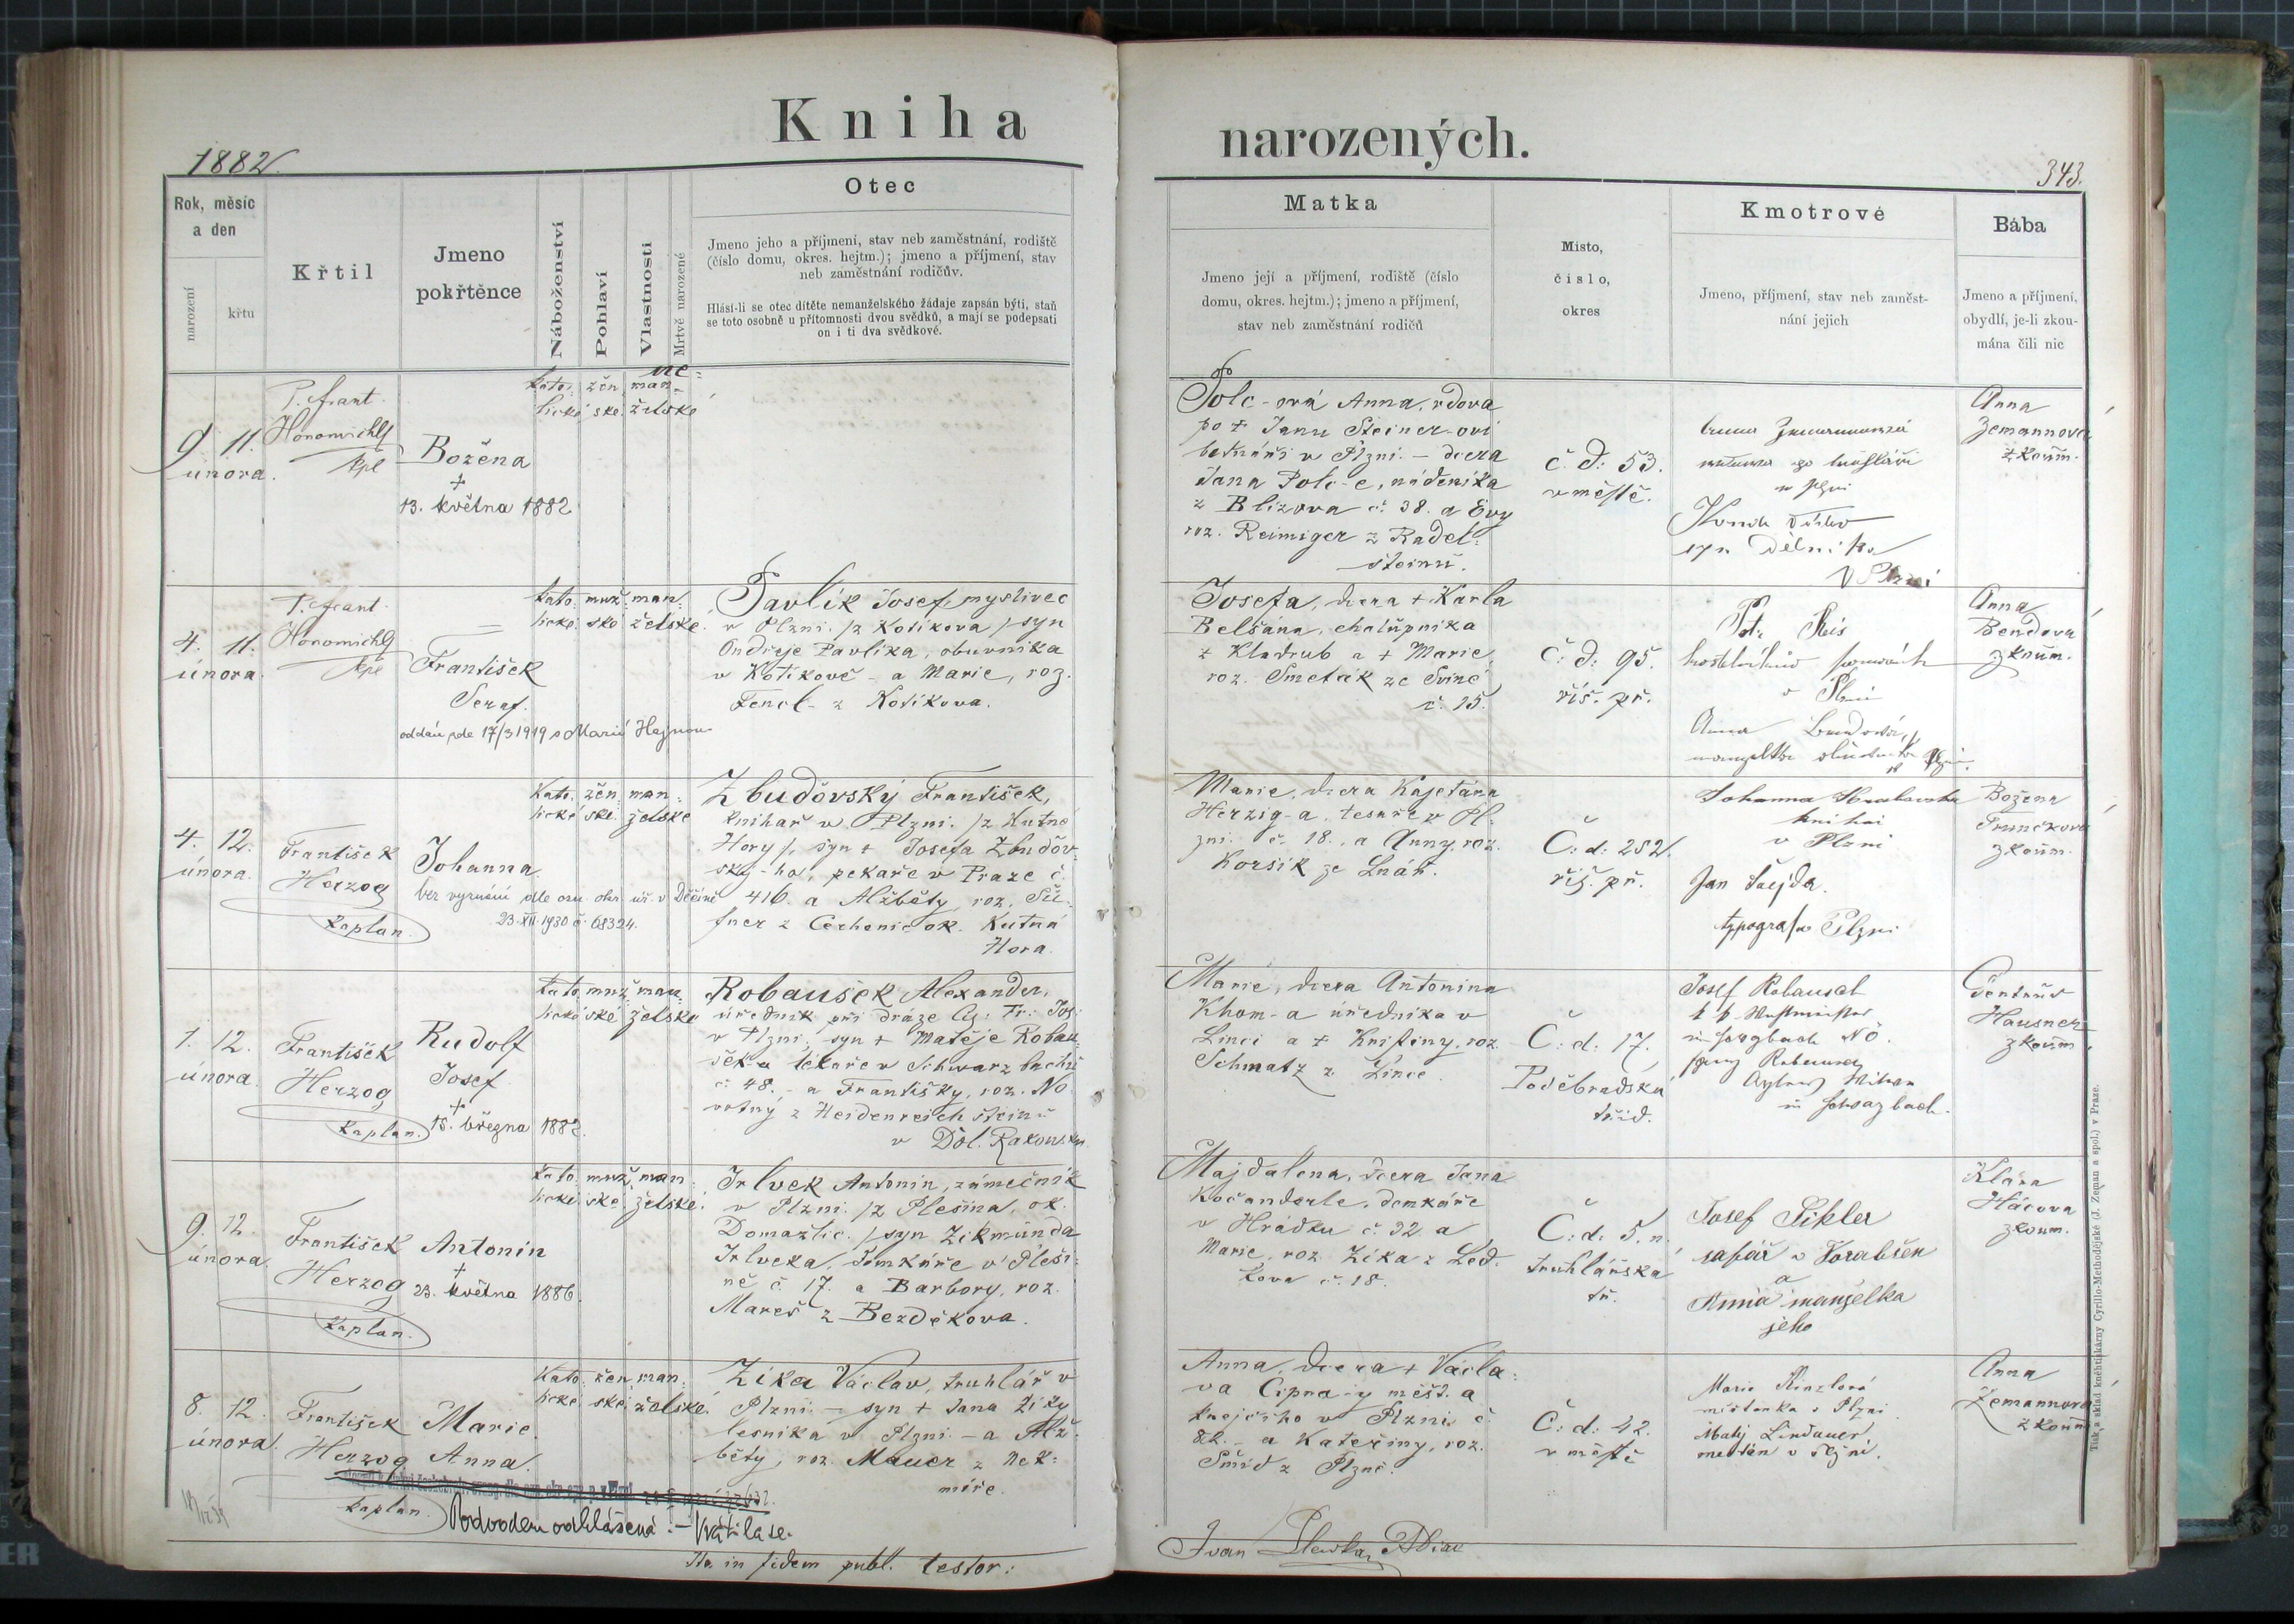 Kniha
narozených.
1882
343.
Rok, měsíc
a den
narození
křtu
Křtil
Jmeno
pokřtěnce
Náboženství
Pohlaví
Vlastnosti
Mrtvě narozené
Otec
Jmeno jeho a příjmení, stav neb zaměstnání, rodiště
(číslo domu, okres. hejtm.); jmeno a příjmení, stav
neb zaměstnání rodičův.
Hlásí-li se otec dítěte nemanželského žádaje zapsán býti, staň
se toto osobně u přítomnosti dvou svědků, a mají se podepsati
on i ti dva svědkové.
Matka
Jmeno její a příjmení, rodiště (číslo
domu, okres. hejtm.); jmeno a příjmení,
stav neb zaměstnání rodičů
Místo,
číslo,
okres
Kmotrové
Jmeno, příjmení, stav neb zaměst-
nání jejich
Bába
Jmeno a příjmení,
obydlí, je-li zkou-
mána čili nic
9. 11.
února.
P. Frant.
Honomichl
kpl
Božena
+
13. května 1882
kato: žen ne=
man
lické ské želské
Polc-ová Anna, vdova
po + Janu Steiner-ovi
v Plzni. – dcera
Jana Polc-e, nádeníka
z Blízova č. 38. a Evy
roz. Reiminger z Radel:
šteinu.
č. d: 53.
v městě.
v Plzni
syn dělníka
v Plzni
Anna
Zemannova
zkoum.
4. 11.
února.
P. Frant.
Honomichl
kpl
František
Seraf.
oddán dle 17/3 1919 s Marií Hajnou
kato: muž: man:
lické. ské želské.
Pavlík Josef, myslivec
v Plzni. /z Kotíkova/ syn
Ondřeje Pavlíka, obuvníka
v Kotíkově – a Marie, roz.
Fencl – z Kotíkova.
Josefa, dcera + Karla
Belšána, chalupníka
z Kladrub a + Marie,
roz. Smeták ze Sviné
č. 15.
č: d: 95.
říš. př.
v Plzni
Anna
manželka
Anna
Bendova
zkoum.
4. 12.
února.
František
Herzog
kaplan.
Johanna.
bez vyznání dle ozn. okr. úř. v Děčíně
23.XII.1930 č. 68324.
Kato: žen: man:
lické ské. želské
Zbuďovský František,
knihař v Plzni. /z Kutné
Hory/, syn + Josefa Zbuďov-
ský-ho, pekaře v Praze č.
416. a Alžběty, roz.
z ok. Kutná
Hora.
Marie, dcera Kajetána
Herzig-a, tesaře v Pl-
zni. č. 18., a Anny, roz.
Koršík ze Lnář.
Č: d: 252.
říš. př.
Johanna
v Plzni
Jan Šlejda.
typograf v Plzni
Božena
zkoum.
1. 12.
února.
František
Herzog
kaplan.
Rudolf
Josef
+
15. března 1882.
kato: muž: man:
lické ské želské
Robaušek Alexander,
úředník při dráze Cís: Fr: Jos:
v Plzni, syn + Matěje Robau-
šek-a lékaře v Schwarzbachu
č. 48. – a Františky, roz. No-
votny z Heidenreichšteinu
v Dol. Rakousku.
Marie, dcera Antonína
Khom-a úředníka v
Linci a + Kristiny, roz.
Schmatz z Lince.
Č: d. 17.
Poděbradská
tříd.
Josef Robausch
in Schwarzbach.
Hausner
zkoum.
9. 12.
února.
František
Herzog
kaplan.
Antonín
+
23. května 1886.
kato: muž: man:
lické ské želské.
Irlvek Antonín, zámečník
v Plzni. /z Plešina, ok.
Domažlic./ syn Zikmunda
Irlveka, domkáře v Pleši-
ně č. 17. a Barbory, roz.
Mareš z Bezděkova.
Majdalena, dcera Jana
Kočanderle, domkáře
v Hrádku č. 32. a
Marie, roz. Zíka z Led-
kova č. 18.
Č: d. 5. n.
truhlářská
tř.
Josef Pikler
v
a
Anna manželka
jeho
Klára
Hácova
zkoum.
8. 12.
února.
František
Herzog
kaplan.
Marie
Anna.
Podvodem odhlášená. – Vrátila se.
kato: žen: man:
lické ské. želské.
Zíka Václav, truhlář v
Plzni. – syn + Jana Zíky
lesníka v Plzni – a Alž-
běty, roz. Mauer z Nek-
míře.
Anna, dcera + Václa-
va Cipra-y měšť. a
krejčího v Plzni č.
82. – a Kateřiny, roz.
Šmíd z Plzně.
Č: d: 42.
v městě
Marie Kinzlová
měšťanka v Plzni
Matěj Lindauer,
měšťan v Plzni.
Anna
Zemannova
zkoum.
Ita in fidem publ. testor:
Tisk a sklad kněhtiskárny Cyrillo-Methodějské (J. Zeman a spol.) v Praze.